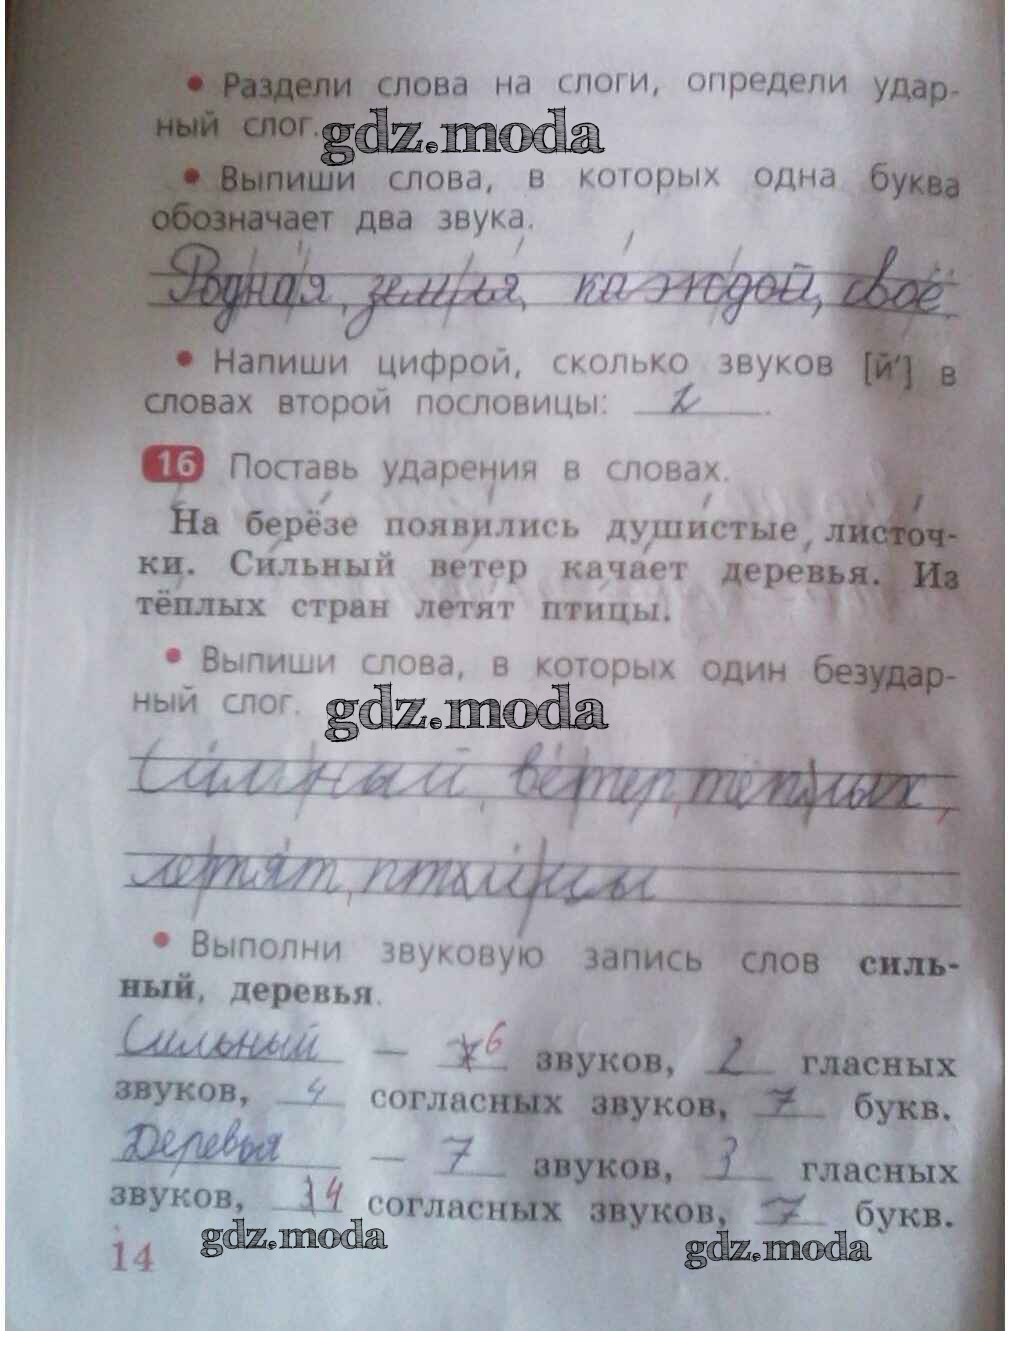 • Раздели слова на слоги, определи удар-
ный слог.
gdz.moda
• Выпиши слова, в которых одна буква
обозначает два звука.
Родная, земля, каждой, своё
• Напиши цифрой, сколько звуков [й'] в
словах второй пословицы: 2.
16 Поставь ударения в словах.
На берёзе появились душистые листоч-
ки. Сильный ветер качает деревья. Из
тёплых стран летят птицы.
• Выпиши слова, в которых один безудар-
ный слог.
gdz.moda
Сильный, ветер, тёплых,
летят, птицы
• Выполни звуковую запись слов силь-
ный, деревья.
Сильный — 6 звуков, 2 гласных
звуков, 4 согласных звуков, 7 букв.
Деревья — 7 звуков, 3 гласных
звуков, 4 согласных звуков, 7 букв.
gdz.moda gdz.moda
14